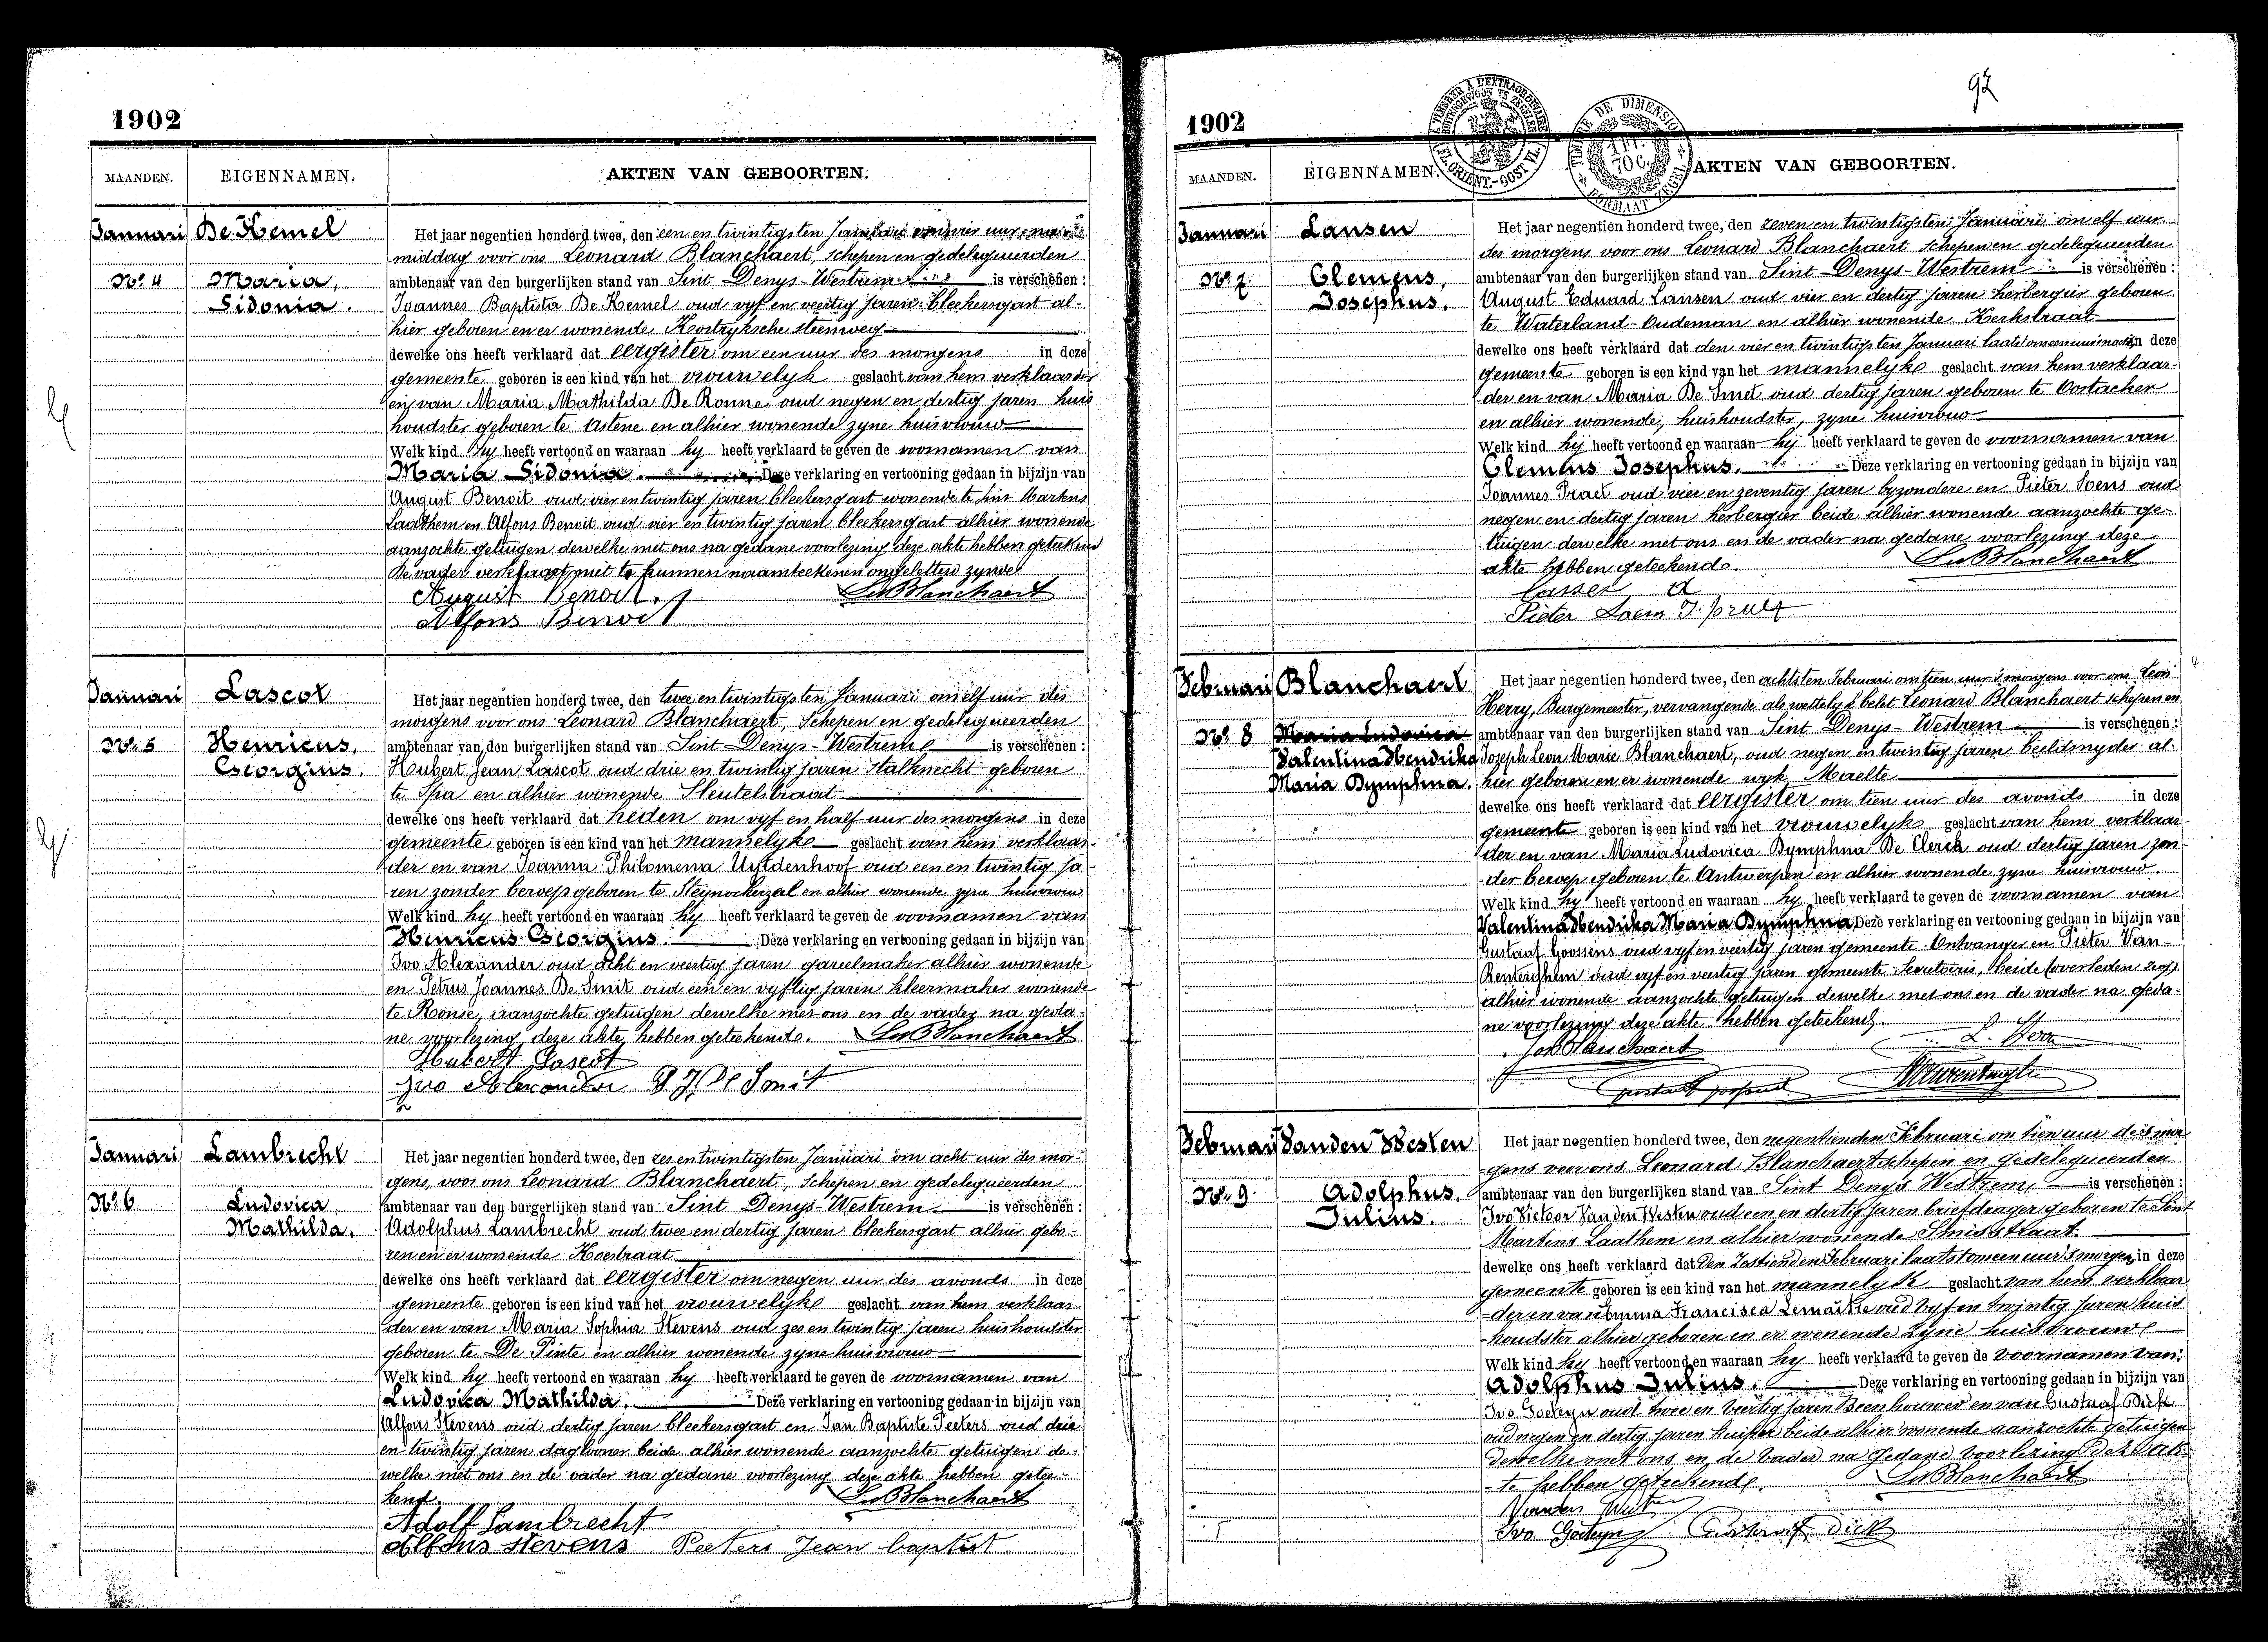 1902
MAANDEN. EIGENNAMEN. AKTEN VAN GEBOORTEN.
Januari De Kemel
No. 4 Maria,
Sidonia.
Het jaar negentien honderd twee, den een en twintigsten Januari om vier uur na
middag voor ons Leonard Blanchaert, schepen en gedelegueerden
ambtenaar van den burgerlijken stand van Sint Denys-Westrem is verschenen :
Joannes Baptista De Kemel oud vyf en veertig jaren bleekersgast al-
hier geboren en er wonende Kortryksche steenweg
dewelke ons heeft verklaard dat eergister om een uur des morgens in deze
gemeente geboren is een kind van het vrouwelyk geslacht van hem verklaarder
en van Maria Mathilda De Ronne oud negen en dertig jaren huis
houdster geboren te Astene en alhier wonende zyne huisvrouw
Welk kind hy heeft vertoond en waaraan hy heeft verklaard te geven de voornamen van
Maria Sidonia. Deze verklaring en vertooning gedaan in bijzijn van
August Benoit oud vier en twintig jaren bleekersgast wonende te Sint Martens
Laathem en Alfons Benoit oud vier en twintig jaren bleekersgast alhier wonende
aanzochte getuigen dewelke met ons na gedane voorlezing deze akte hebben geteekend
De vader verklaart niet te kunnen naamteekenen ongeletterd zynde
August Benoit. Le Blanchaert
Alfons Benoit
Januari Lascot
No. 5 Henricus,
Georgius.
Het jaar negentien honderd twee, den twee en twintigsten Januari om elf uur des
morgens voor ons Leonard Blanchaert, Schepen en gedelegueerden
ambtenaar van den burgerlijken stand van Sint Denys-Westrem is verschenen :
Hubert Jean Lascot oud drie en twintig jaren stalknecht geboren
te Spa en alhier wonende Sleutelstraat
dewelke ons heeft verklaard dat heden om vyf en half uur des morgens in deze
gemeente geboren is een kind van het mannelyke geslacht van hem verklaar-
der en van Joanna Philomena Uytdenhoof oud een en twintig ja-
ren zonder beroep geboren te Steynockerzeel en alhier wonende zyne huisvrouw
Welk kind hy heeft vertoond en waaraan hy heeft verklaard te geven de voornamen van
Henricus Georgius. Deze verklaring en vertooning gedaan in bijzijn van
Ivo Alexander oud acht en veertig jaren gareelmaker alhier wonende
en Petrus Joannes De Smit oud een en vyftig jaren kleermaker wonende
te Ronse, aanzochte getuigen dewelke met ons en de vader na geda-
ne voorlezing deze akte hebben geteekend. Le Blanchaert
Hubert Lascot
Ivo Alexander P J De Smit
Januari Lambrecht
No. 6 Ludovica,
Mathilda.
Het jaar negentien honderd twee, den zes en twintigsten Januari om acht uur des mor-
gens, voor ons Leonard Blanchaert, Schepen en gedelegueerden
ambtenaar van den burgerlijken stand van Sint Denys-Westrem is verschenen :
Adolphus Lambrecht oud twee en dertig jaren bleekersgast alhier gebo-
ren en er wonende Koestraat
dewelke ons heeft verklaard dat eergister om negen uur des avonds in deze
gemeente geboren is een kind van het vrouwelyke geslacht van hem verklaar-
der en van Maria Sophia Stevens oud zes en twintig jaren huishoudster
geboren te De Pinte en alhier wonende zyne huisvrouw
Welk kind hy heeft vertoond en waaraan hy heeft verklaard te geven de voornamen van
Ludovica Mathilda. Deze verklaring en vertooning gedaan in bijzijn van
Alfons Stevens oud dertig jaren bleekersgast en Jan Baptiste Peeters oud drie
en twintig jaren daglooner beide alhier wonende aanzochte getuigen de-
welke met ons en de vader na gedane voorlezing deze akte hebben getee-
kend. Le Blanchaert
Adolf Lambrecht
Alfons Stevens Peeters Jean baptist
97
1902
MAANDEN. EIGENNAMEN. AKTEN VAN GEBOORTEN.
Januari Lansen
No. 7 Clemens,
Josephus.
Het jaar negentien honderd twee, den zeven en twintigsten Januari om elf uur
des morgens voor ons Leonard Blanchaert schepen en gedelegueerden
ambtenaar van den burgerlijken stand van Sint Denys-Westrem is verschenen :
August Eduard Lansen oud vier en dertig jaren herbergier geboren
te Waterland-Oudeman en alhier wonende Kerkstraat
dewelke ons heeft verklaard dat den vier en twintigsten Januari laatst om een uur in deze
gemeente geboren is een kind van het mannelyke geslacht van hem verklaar-
der en van Maria De Smet oud dertig jaren geboren te Oostacker
en alhier wonende, huishoudster, zyne huisvrouw
Welk kind hij heeft vertoond en waaraan hij heeft verklaard te geven de voornamen van
Clemens Josephus. Deze verklaring en vertooning gedaan in bijzijn van
Joannes Praet oud vier en zeventig jaren byzondere en Pieter Soens oud
negen en dertig jaren herbergier beide alhier wonende aanzochte ge-
tuigen dewelke met ons en de vader na gedane voorlezing deze
akte hebben geteekend. Le Blanchaert
Pieter Soens J. praet
Februari Blanchaert
No. 8 Maria Ludovica
Valentina Hendrika
Maria Dymphna.
Het jaar negentien honderd twee, den achtsten Februari om tien uur 's morgens voor ons Leon
Herry, Burgemeester, vervangende als wettelyk belet Leonard Blanchaert schepen en
ambtenaar van den burgerlijken stand van Sint Denys-Westrem is verschenen :
Joseph Leon Marie Blanchaert, oud negen en twintig jaren beeldsnyder al-
hier geboren en er wonende wyk Maelte
dewelke ons heeft verklaard dat eergister om tien uur des avonds in deze
gemeente geboren is een kind van het vrouwelyke geslacht van hem verklaar-
der en van Maria Ludovica Dymphna De Clerck oud dertig jaren zon-
der beroep geboren te Antwerpen en alhier wonende zyne huisvrouw.
Welk kind hy heeft vertoond en waaraan hy heeft verklaard te geven de voornamen van
Valentina Hendrika Maria Dymphna Deze verklaring en vertooning gedaan in bijzijn van
Gustaaf Goossens oud vyf en veertig jaren gemeente Ontvanger en Pieter Van-
Renterghem oud vyf en veertig jaren gemeente Secretaris, beide
alhier wonende aanzochte getuigen dewelke met ons en de vader na geda-
ne voorlezing deze akte hebben geteekend.
Jos Blanchaert
Februari Vanden Westen
No. 9 Adolphus,
Julius.
Het jaar negentien honderd twee, den negentienden Februari om tien uur des mor
gens voor ons Leonard Blanchaert schepen en gedelegueerden
ambtenaar van den burgerlijken stand van Sint Denys Westrem, is verschenen :
Ivo Victoor Vanden Westen oud een en dertig jaren briefdrager geboren te Sint
Martens Laathem en alhier wonende Smidsstraat.
dewelke ons heeft verklaard dat Den Zestienden Februari laatst om een uur 's morgens in deze
gemeente geboren is een kind van het mannelyk geslacht van hem verklaar
-der en van Emma Francisca Lemaitre oud vyf en twintig jaren huis
houdster alhier geboren en er wonende zyne huisvrouwe
Welk kind hy heeft vertoond en waaraan hy heeft verklaard te geven de voornamen van:
Adolphus Julius. Deze verklaring en vertooning gedaan in bijzijn van
Ivo Goeteyn oud twee en veertig jaren Beenhouwer en van Gustaaf Dick
oud negen en dertig jaren kuiper beide alhier wonende aanzochte getuigen
dewelke met ons en de vader na gedane voorlezing deze ak-
-te hebben geteekend. Le Blanchaert
Vanden Westen
Ivo Goeteyn Gustaaf Dick